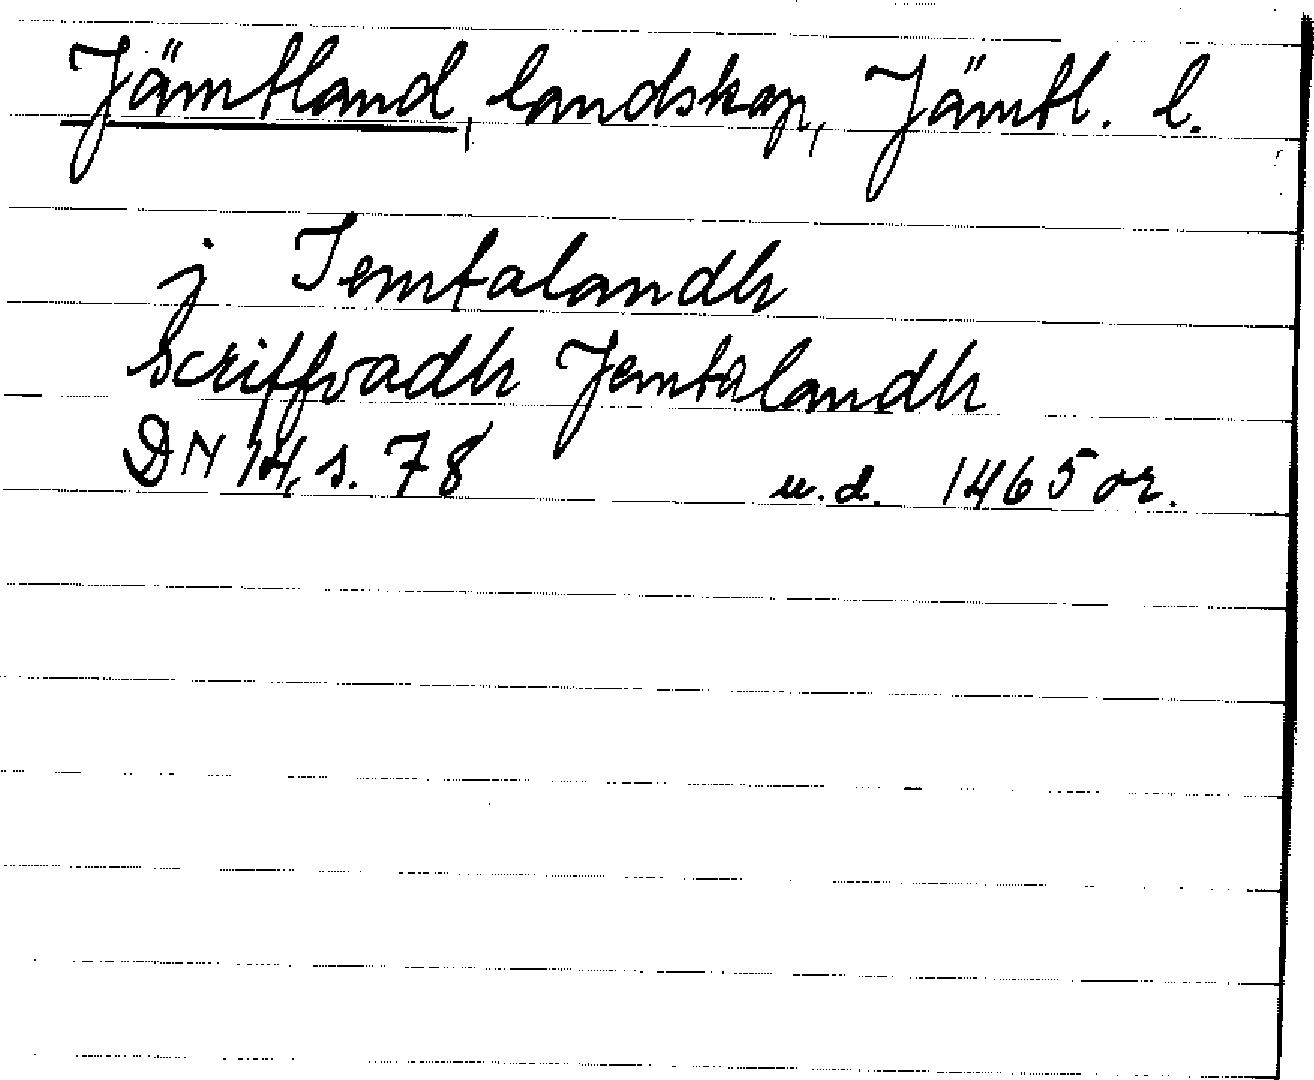 Jämtland, landskap, Jämtl. l.
j Iemtalandh
Scriffvadh Jemtalandh
DN 14, s. 78 u.d. 1465 or.